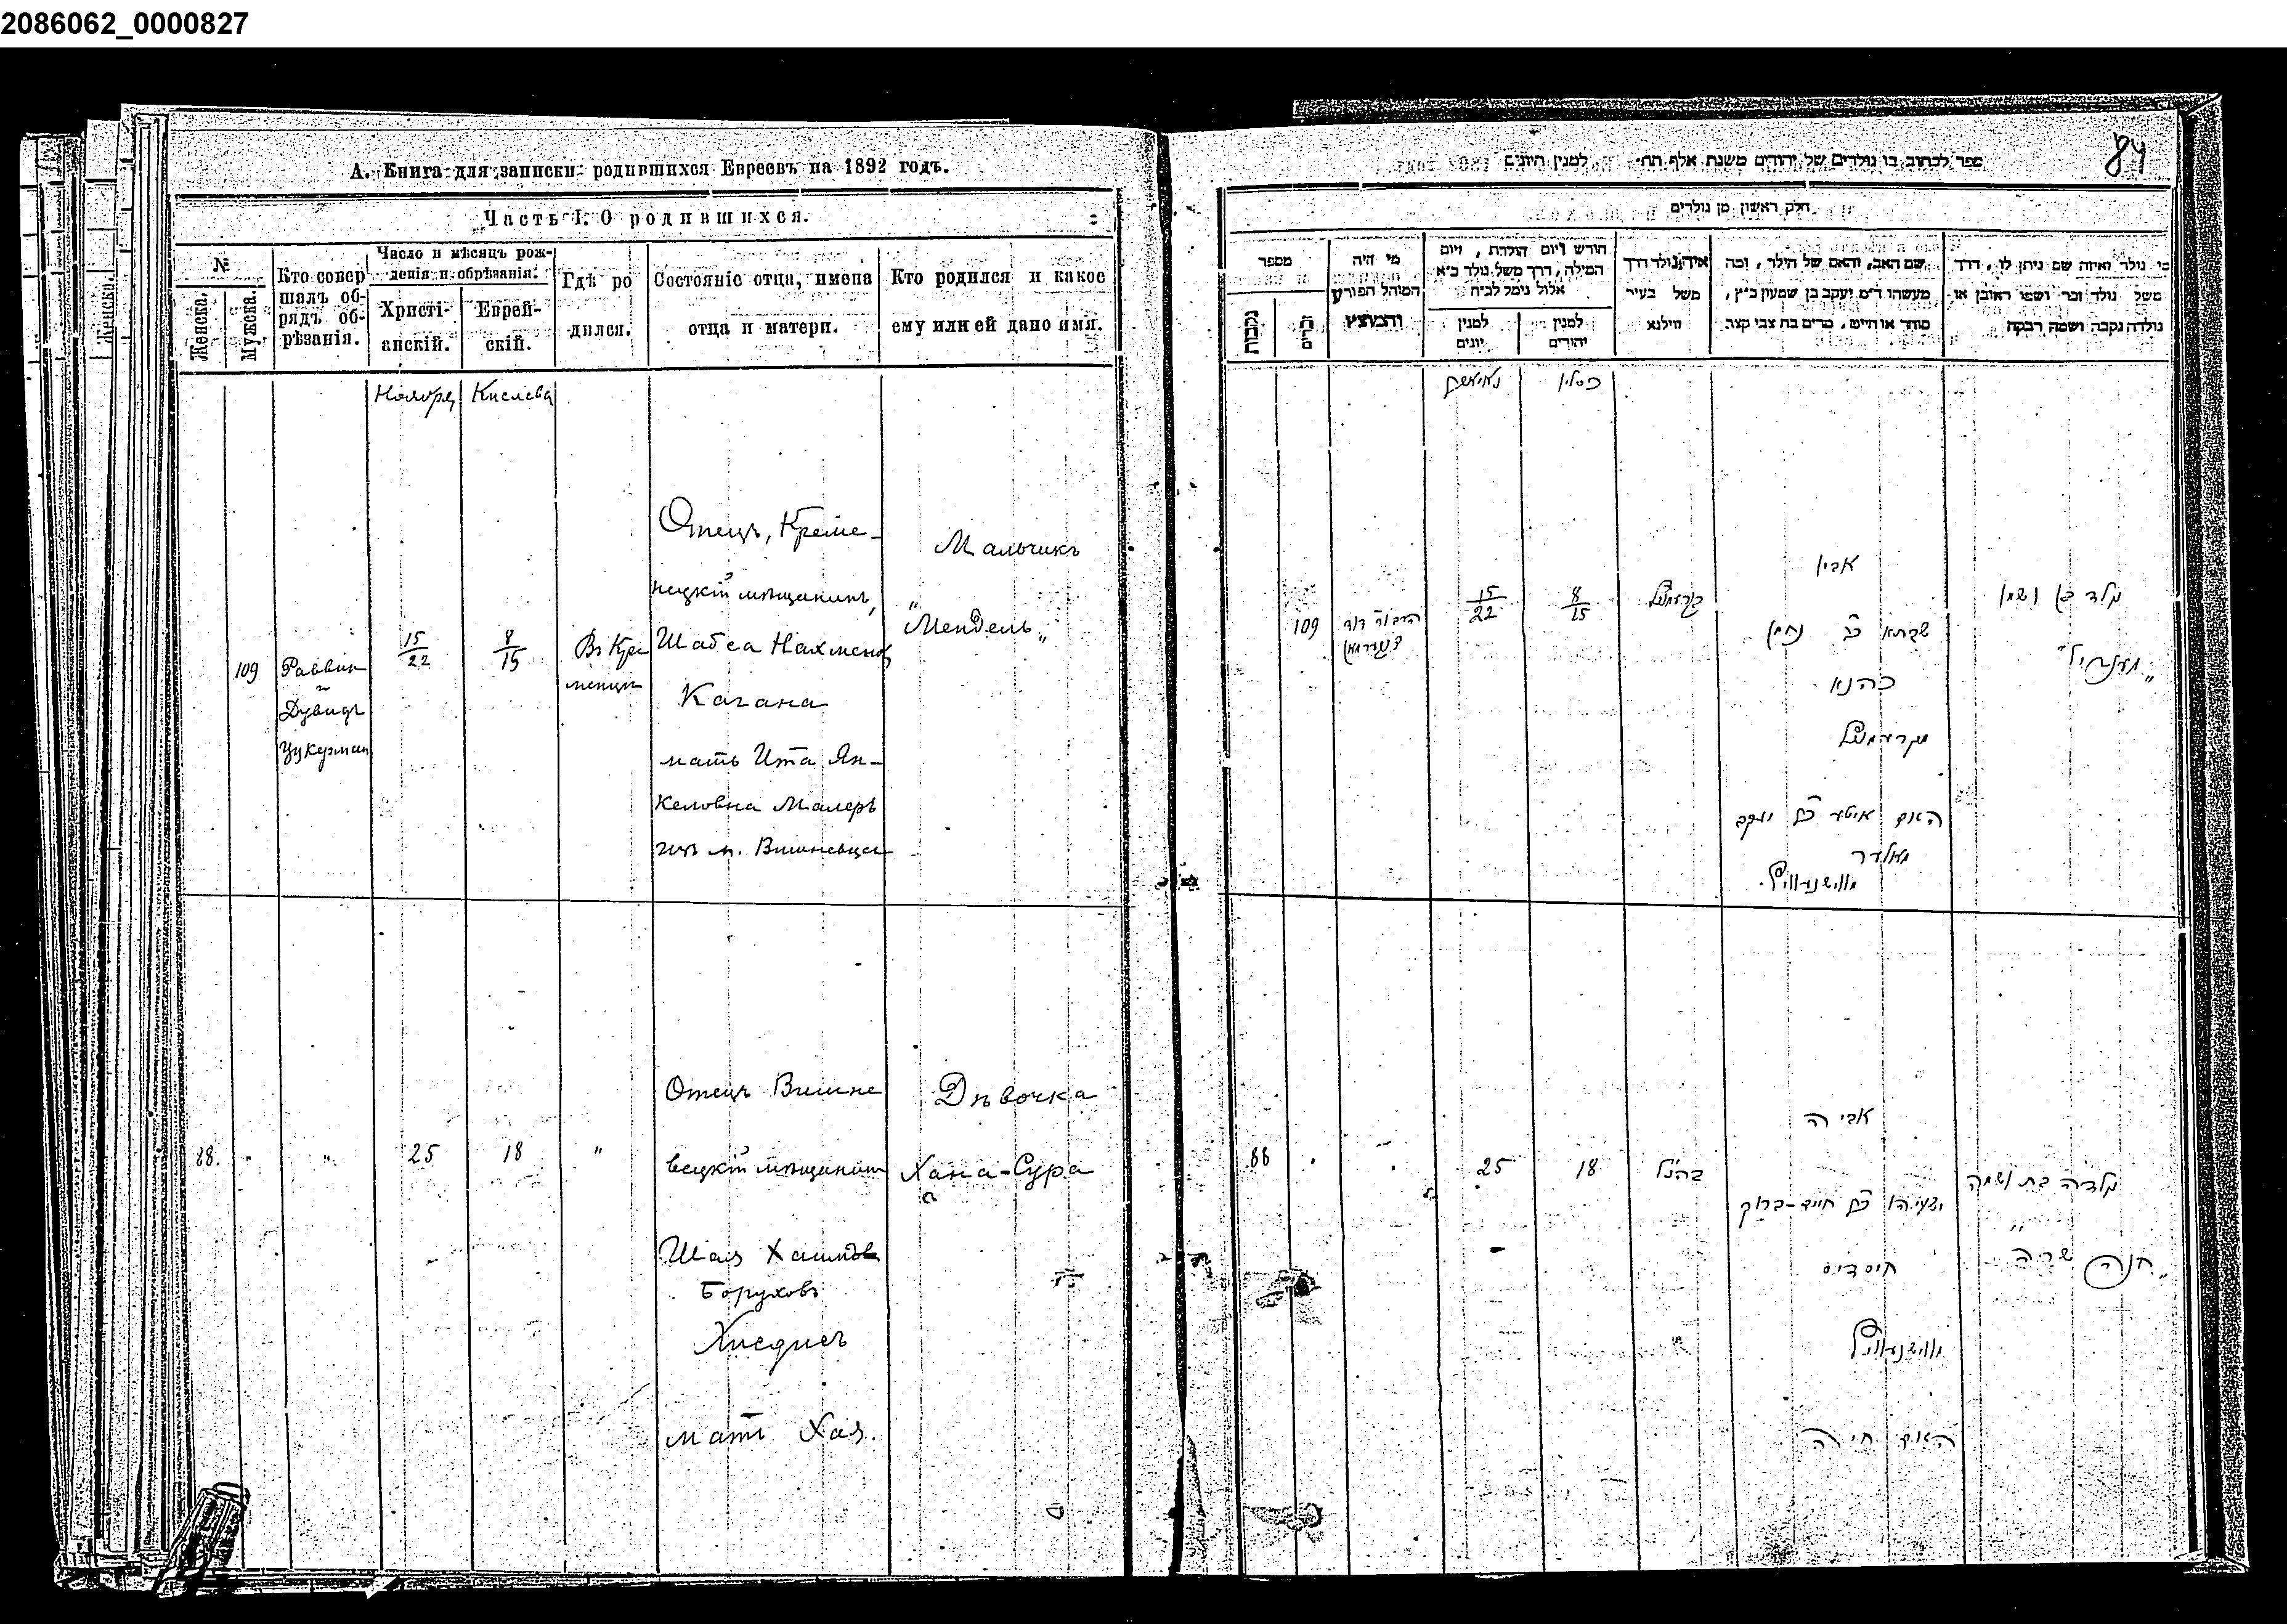 2086062_0000827
А. Книга для записки родившихся Евреевъ на 1892 годъ.
Часть I. О родившихся.
№
Женска.
Мужска.
Кто совер
шалъ об-
рядъ об-
рѣзанія.
Число и мѣсяцъ рож-
денія и обрѣзанія.
Христі-
анскій.
Еврей-
скій.
Гдѣ ро
дился.
Состояніе отца, имена
отца и матери.
Кто родился и какое
ему или ей дано имя.
Ноября
Кислева
109
Раввинъ
Дувидъ
Цукерман
15
22
8
15
Въ Кре
менцѣ
Отецъ, Креме-
нецкій мѣщанинъ,
Шабса Нахменов
Кагана
мать Ита Ян-
келовна Малеръ
изъ м. Вишневца
Мальчикъ
„Мендель„
88.
"
"
25
18
"
Отецъ Вишне
вецкій мѣщанинъ
Шая Хаимов
Боруховъ
Хисдисъ
мать Хая.
Дѣвочка
Хана-Сура
84
ספר לכתוב בו נולדים של יהודים משנת אלף תת׳ למנין היונים
חלק ראשון מן נולדים
מספר
נקבות
זכרים
מי היה
המוהל הפורע
והמוצץ
חורש ויום הולדת, ויום
המילה, דרך משל נולד כ״א
אלול נימל לכ״ח
למנין
יונים
למנין
יהודים
איה נולד דרך
משל בעיר
ווילנא
שם האב, והאם של הילד, ומה
מעשהו ד״מ יעקב בן שמעון כ״ץ,
סוחר או חייט, מרים בת צבי קצב
מי נולד ואיזה שם ניתן לו, דרך
משל נולד זכר ושמו ראובן או
נולדה נקבה ושמה רבקה
כסלו
109
דוד
צוקערמאן
15
22
8
15
קרעמניץ
אביו
שבתא ב״ר נחמן
כהנא
מקרעמניץ
האם איטא בת יעקב
מאלער
מווישנעוויץ.
נולד בן ושמו
„מענדיל״
88
25
18
כהנ״ל
אביה
ישעיהו בן חיים-ברוך
חיסדיס
ווישנעוויץ
האם חיה
נולדה בת ושמה
„חנה שרה